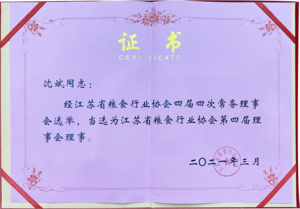 证书
CERTIFICATE
沈斌同志：
经江苏省粮食行业协会四届四次常务理事
会选举，当选为江苏省粮食行业协会第四届理
事会理事。
二〇二一年三月